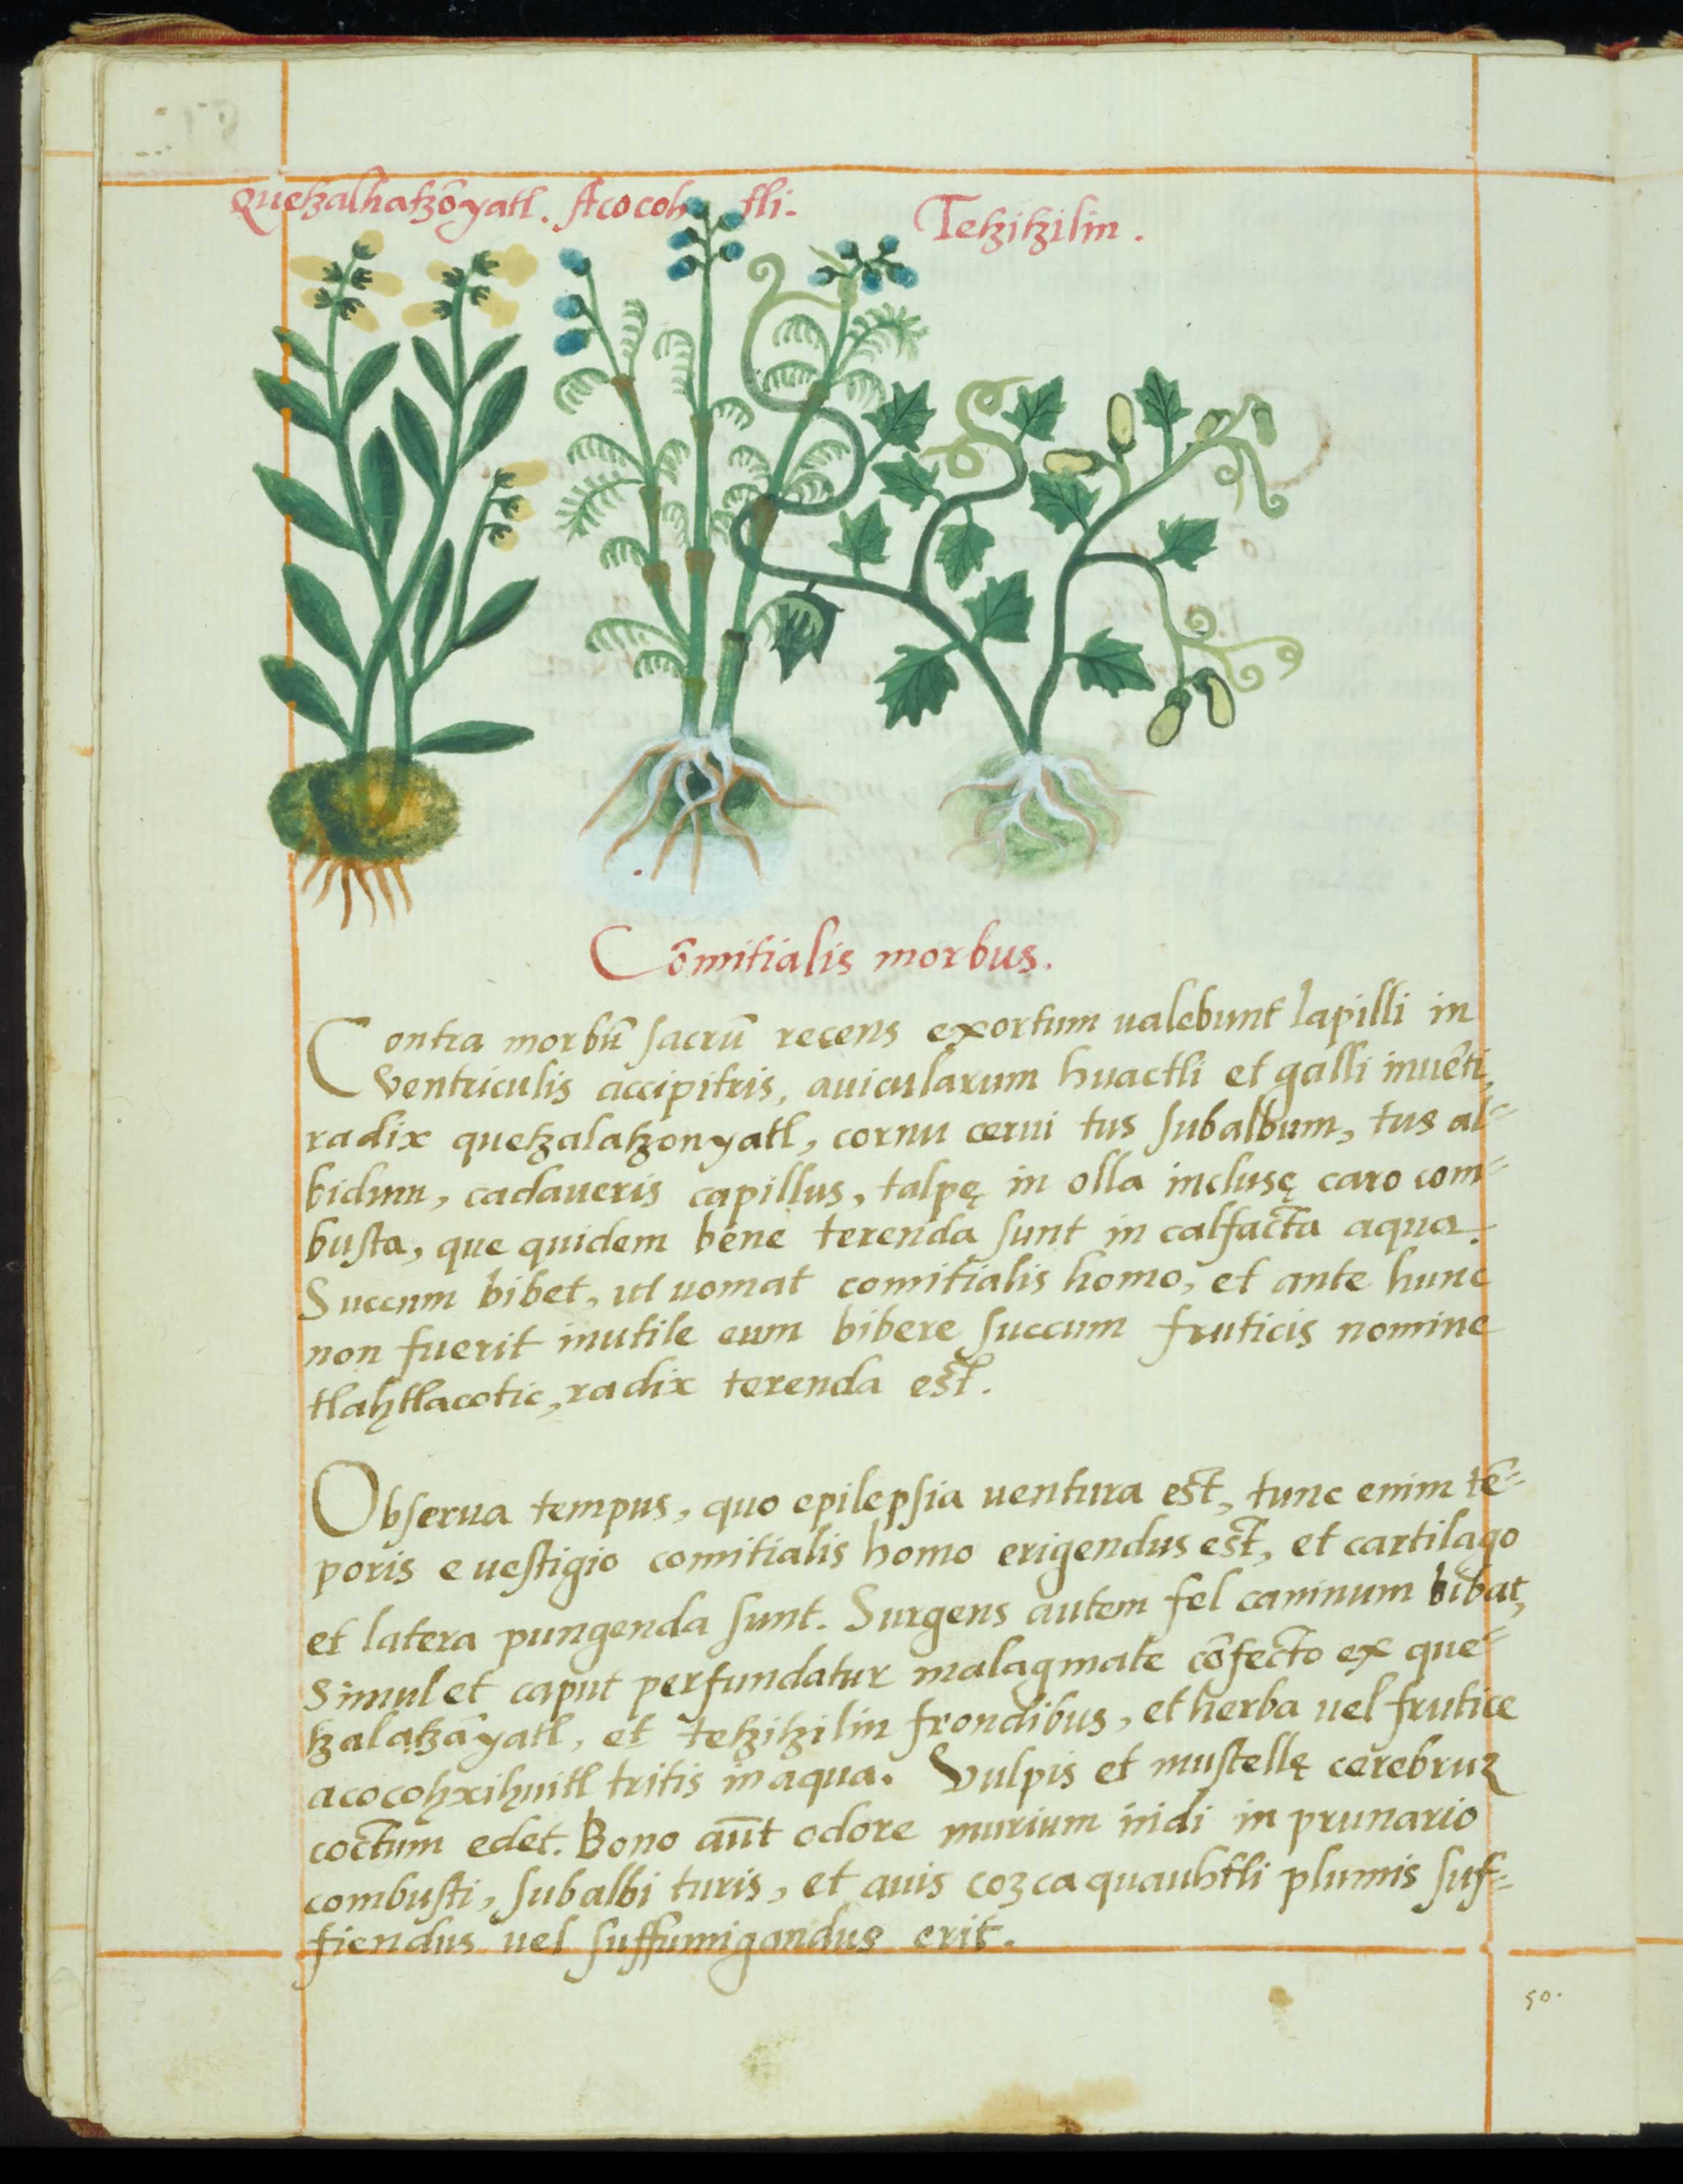 Quetzalhatzōyatl. Acocohtli. Tetzitzilin.
Cōmitialis morbus.
Contra morbū sacrū recens exortum ualebunt lapilli in
ventriculis accipitris, auicularum huactli et galli inuēti,
radix quetzalatzonyatl, cornu cerui tus subalbum, tus al=
bidum, cadaueris capillus, talpę in olla inclusę caro com=
busta, que quidem bene terenda sunt in calfacta aqua.
Succum bibet, ut uomat comitialis homo, et ante hunc
non fuerit inutile eum bibere succum fruticis nomine
tlahtlacotic, radix terenda est.
Obserua tempus, quo epilepsia uentura est, tunc enim tē=
poris e uestigio comitialis homo erigendus est, et cartilago
et latera pungenda sunt. Surgens autem fel caninum bibat,
simul et caput perfundatur malagmate cōfecto ex que=
tzalatzōyatl, et tetzitzilin frondibus, et herba uel frutice
acocohxihuitl tritis in aqua. Vulpis et mustellę cerebruz
coctum edet. Bono aūt odore murium nidi in prunario
combusti, subalbi turis, et auis cozcaquauhtli plumis suf=
fiendus uel suffumigandus erit.
50.